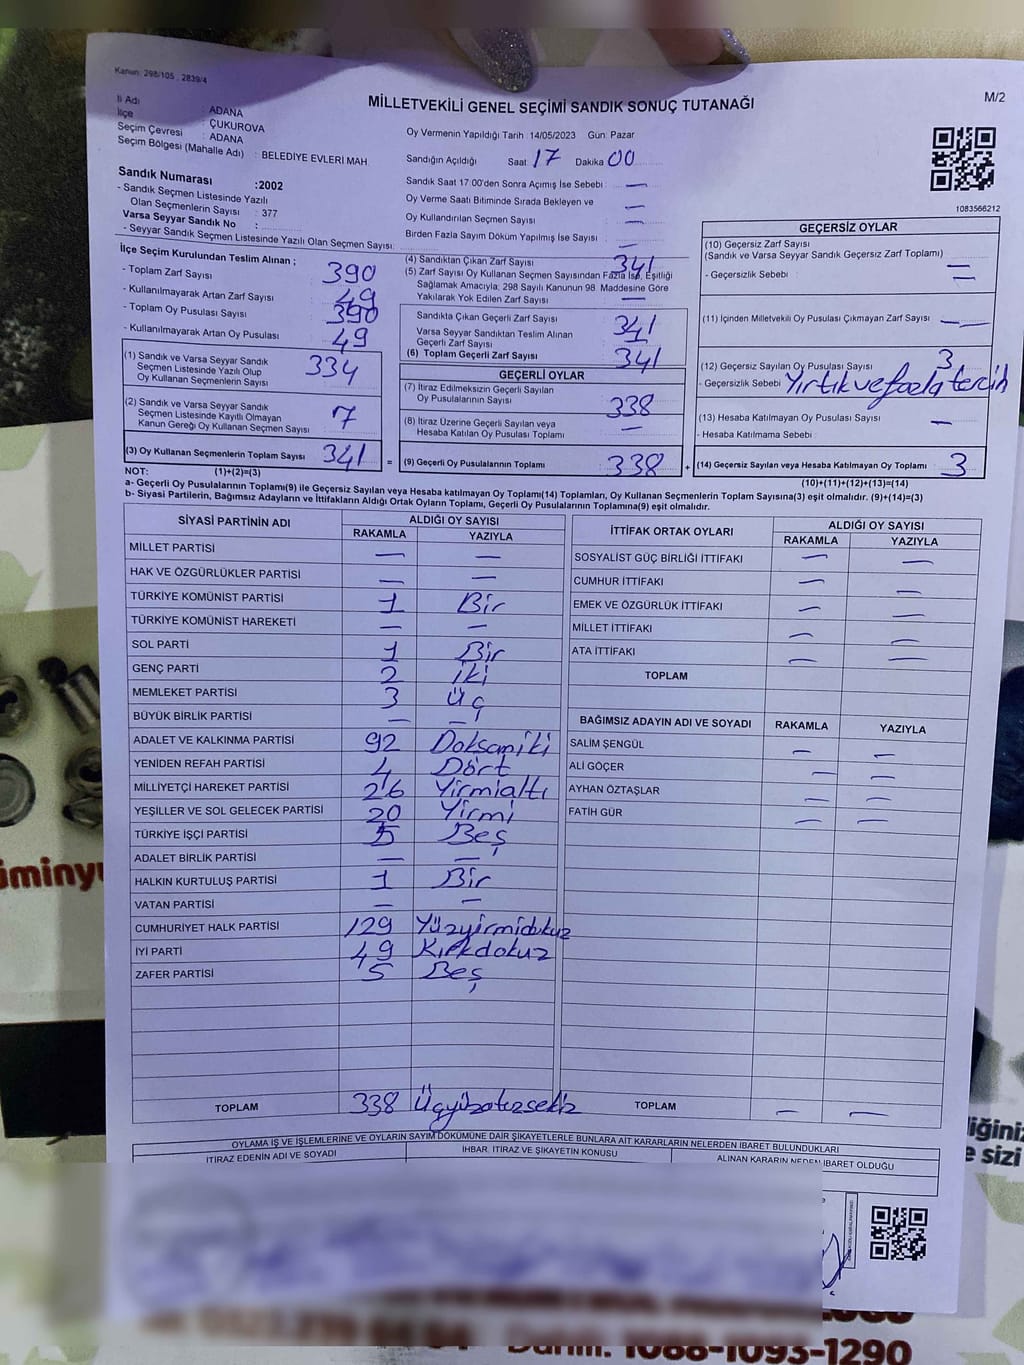 Kanun: 298/105 , 2839/4
MİLLETVEKİLİ GENEL SEÇİMİ SANDIK SONUÇ TUTANAĞI
M/2
İl Adı : ADANA
İlçe : ÇUKUROVA
Seçim Çevresi : ADANA
Seçim Bölgesi (Mahalle Adı) : BELEDİYE EVLERİ MAH
Sandık Numarası :2002
- Sandık Seçmen Listesinde Yazılı
Olan Seçmenlerin Sayısı : 377
Varsa Seyyar Sandık No :
- Seyyar Sandık Seçmen Listesinde Yazılı Olan Seçmen Sayısı:
Oy Vermenin Yapıldığı Tarih :14/05/2023 Gün: Pazar
Sandığın Açıldığı Saat 17 Dakika 00
Sandık Saat 17:00'den Sonra Açımış İse Sebebi : —
Oy Verme Saati Bitiminde Sırada Bekleyen ve —
Oy Kullandırılan Seçmen Sayısı : —
Birden Fazla Sayım Döküm Yapılmış İse Sayısı : —
1083566212
İlçe Seçim Kurulundan Teslim Alınan ;
- Toplam Zarf Sayısı 390
- Kullanılmayarak Artan Zarf Sayısı 49
- Toplam Oy Pusulası Sayısı 390
- Kullanılmayarak Artan Oy Pusulası 49
(1) Sandık ve Varsa Seyyar Sandık
Seçmen Listesinde Yazılı Olup
Oy Kullanan Seçmenlerin Sayısı 334
(2) Sandık ve Varsa Seyyar Sandık
Seçmen Listesinde Kayıtlı Olmayan
Kanun Gereği Oy Kullanan Seçmen Sayısı 7
(3) Oy Kullanan Seçmenlerin Toplam Sayısı 341 =
(4) Sandıktan Çıkan Zarf Sayısı 341
(5) Zarf Sayısı Oy Kullanan Seçmen Sayısından Fazla İse, Eşitliği
Sağlamak Amacıyla; 298 Sayılı Kanunun 98. Maddesine Göre
Yakılarak Yok Edilen Zarf Sayısı —
Sandıkta Çıkan Geçerli Zarf Sayısı 341
Varsa Seyyar Sandıktan Teslim Alınan
Geçerli Zarf Sayısı
(6) Toplam Geçerli Zarf Sayısı 341
GEÇERLİ OYLAR
(7) İtiraz Edilmeksizin Geçerli Sayılan
Oy Pusulalarının Sayısı 338
(8) İtiraz Üzerine Geçerli Sayılan veya
Hesaba Katılan Oy Pusulası Toplamı —
(9) Geçerli Oy Pusulalarının Toplamı 338 +
GEÇERSİZ OYLAR
(10) Geçersiz Zarf Sayısı
(Sandık ve Varsa Seyyar Sandık Geçersiz Zarf Toplamı) —
- Geçersizlik Sebebi : —
(11) İçinden Milletvekili Oy Pusulası Çıkmayan Zarf Sayısı —
(12) Geçersiz Sayılan Oy Pusulası Sayısı 3
- Geçersizlik Sebebi Yırtık ve fazla tercih
(13) Hesaba Katılmayan Oy Pusulası Sayısı —
- Hesaba Katılmama Sebebi :
(14) Geçersiz Sayılan veya Hesaba Katılmayan Oy Toplamı 3
NOT: (1)+(2)=(3) (10)+(11)+(12)+(13)=(14)
a- Geçerli Oy Pusulalarının Toplamı(9) ile Geçersiz Sayılan veya Hesaba katılmayan Oy Toplamı(14) Toplamları, Oy Kullanan Seçmenlerin Toplam Sayısına(3) eşit olmalıdır. (9)+(14)=(3)
b- Siyasi Partilerin, Bağımsız Adayların ve İttifakların Aldığı Ortak Oyların Toplamı, Geçerli Oy Pusulalarının Toplamına(9) eşit olmalıdır.
SİYASİ PARTİNİN ADI ALDIĞI OY SAYISI
RAKAMLA YAZIYLA
MİLLET PARTİSİ — —
HAK VE ÖZGÜRLÜKLER PARTİSİ — —
TÜRKİYE KOMÜNİST PARTİSİ 1 Bir
TÜRKİYE KOMÜNİST HAREKETİ — —
SOL PARTİ 1 Bir
GENÇ PARTİ 2 iki
MEMLEKET PARTİSİ 3 Üç
BÜYÜK BİRLİK PARTİSİ — —
ADALET VE KALKINMA PARTİSİ 92 Doksaniki
YENİDEN REFAH PARTİSİ 4 Dört
MİLLİYETÇİ HAREKET PARTİSİ 26 Yirmialtı
YEŞİLLER VE SOL GELECEK PARTİSİ 20 Yirmi
TÜRKİYE İŞÇİ PARTİSİ 5 Beş
ADALET BİRLİK PARTİSİ — —
HALKIN KURTULUŞ PARTİSİ 1 Bir
VATAN PARTİSİ — —
CUMHURİYET HALK PARTİSİ 129 Yüzyirmidokuz
İYİ PARTİ 49 Kırkdokuz
ZAFER PARTİSİ 5 Beş
TOPLAM 338 Üçyüzotuzsekiz
İTTİFAK ORTAK OYLARI ALDIĞI OY SAYISI
RAKAMLA YAZIYLA
SOSYALİST GÜÇ BİRLİĞİ İTTİFAKI — —
CUMHUR İTTİFAKI — —
EMEK VE ÖZGÜRLÜK İTTİFAKI — —
MİLLET İTTİFAKI — —
ATA İTTİFAKI — —
TOPLAM
BAĞIMSIZ ADAYIN ADI VE SOYADI RAKAMLA YAZIYLA
SALİM ŞENGÜL — —
ALİ GÖÇER — —
AYHAN ÖZTAŞLAR — —
FATİH GÜR — —
TOPLAM — —
OYLAMA İŞ VE İŞLEMLERİNE VE OYLARIN SAYIM DÖKÜMÜNE DAİR ŞİKAYETLERLE BUNLARA AİT KARARLARIN NELERDEN İBARET BULUNDUKLARI
İTİRAZ EDENİN ADI VE SOYADI İHBAR, İTİRAZ VE ŞİKAYETİN KONUSU ALINAN KARARIN NEDEN İBARET OLDUĞU
iğiniz
e sizi
1088-1093-1290